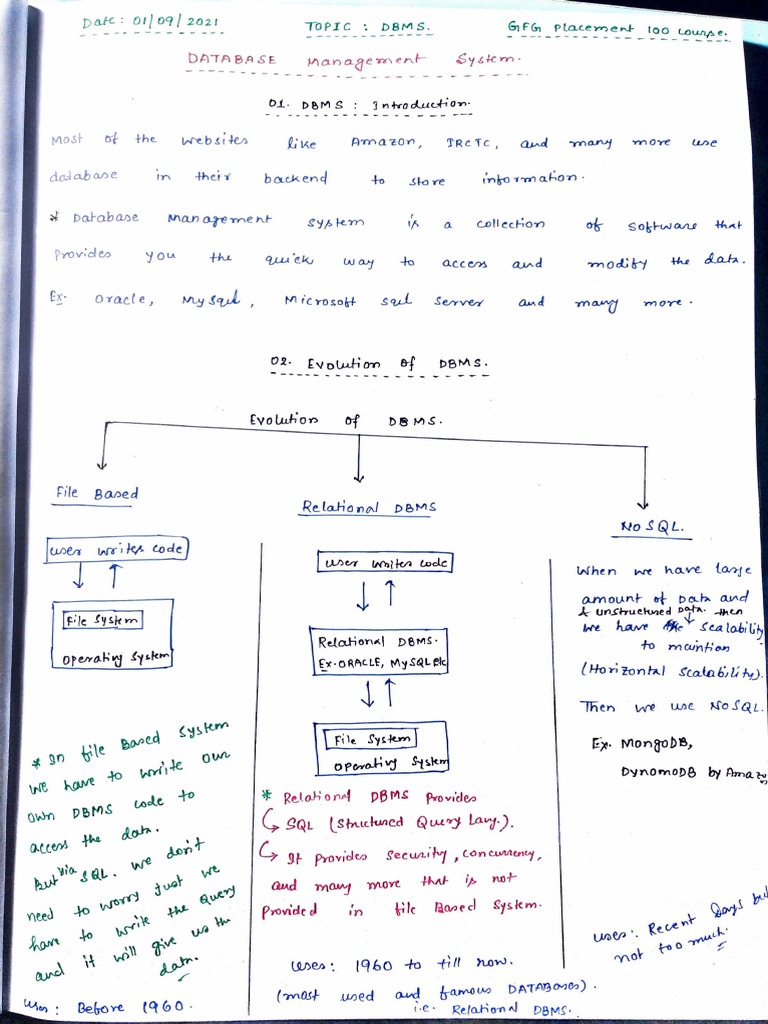 Date: 01/09/2021 TOPIC: DBMS. GFG Placement 100 course.
DATABASE Management System.
01. DBMS: Introduction.
Most of the websites like Amazon, IRCTC, and many more use
database in their backend to store information.
* Database Management System is a collection of software that
Provides you the quick way to access and modify the data.
Ex. Oracle, MySQL, Microsoft SQL Server and many more.
02. Evolution of DBMS.
Evolution of DBMS.
File Based
User writes code
File System
Operating System
* In file Based System
we have to write our
own DBMS code to
access the data.
But via SQL. we don't
need to worry just we
have to write the Query
and it will give us the
data.
Uses: Before 1960.
Relational DBMS
User writes code
Relational DBMS.
Ex. ORACLE, MySQL etc
File System
Operating System
* Relational DBMS Provides
SQL (Structured Query Lang.).
It provides security, concurrency,
and many more that is not
Provided in file Based System.
Uses: 1960 to till now.
(most used and famous DATABASEs).
i.e. Relational DBMS.
NoSQL.
When we have large
amount of Data and
& unstructured Data. then
we have Scalability
to maintian
(Horizontal Scalability).
Then we use NoSQL.
Ex. MongoDB,
DynomoDB by Amazo
Uses: Recent Days but
not too much.